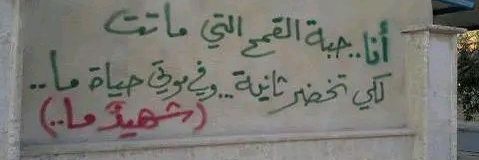 أنا.. حبة القمح التي ماتت
لكي تخضر ثانية.. وفي موتي حياة ما..
(شهيدٌ ما..)